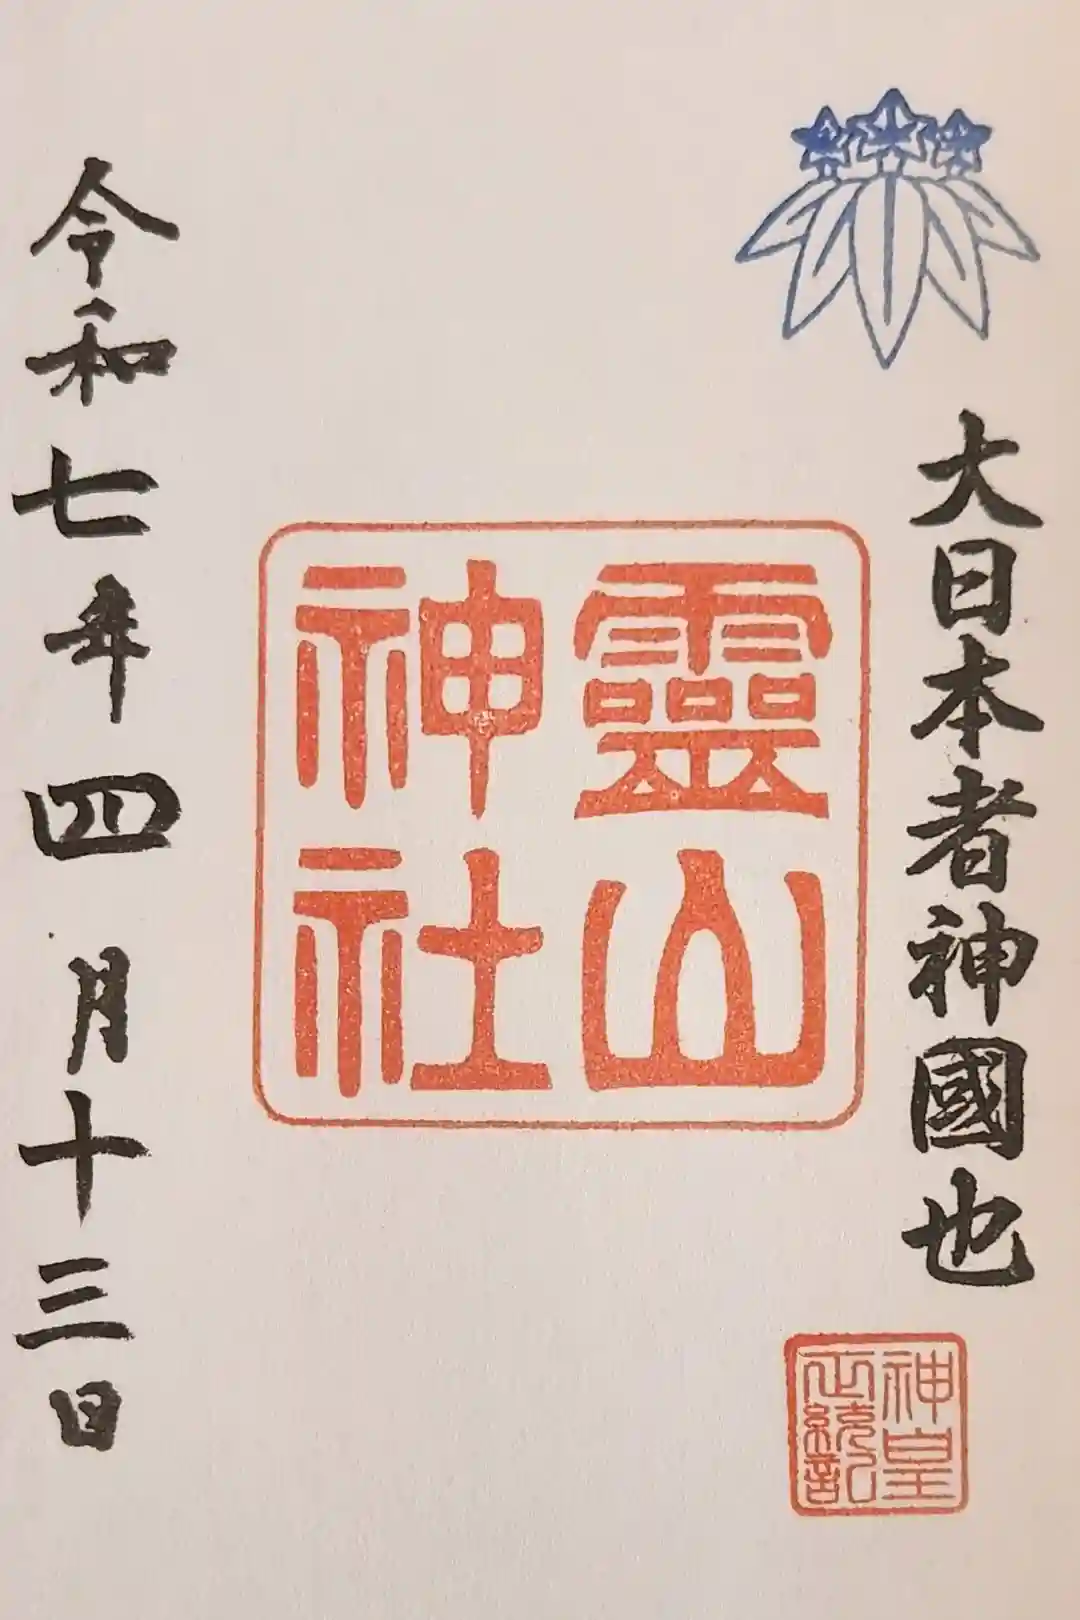 大日本者神國也
神皇正統記
靈山神社
令和七年四月十三日